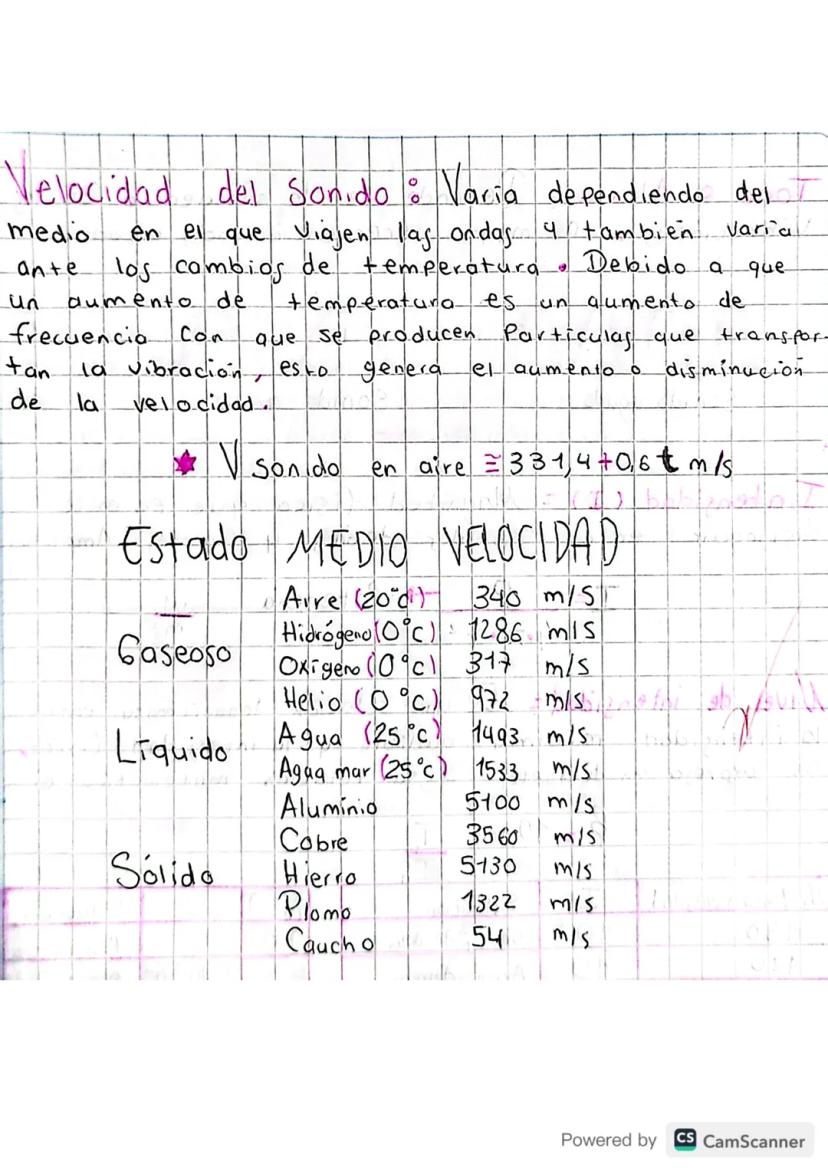 Velocidad del Sonido: Varía dependiendo del
medio en el que viajen las ondas y también varía
ante los cambios de temperatura. Debido a que
un aumento de temperatura es un aumento de
frecuencia con que se producen Partículas que transpor-
tan la vibración, esto genera el aumento o disminución
de la velocidad.
★ V sonido en aire ≅ 331,4+0,6t m/s
Estado MEDIO VELOCIDAD
Aire (20°c) 340 m/s
Hidrógeno (0°c) 1286 m/s
Gaseoso
Oxígeno (0°c) 317 m/s
Helio (0°c) 972 m/s
Agua (25°c) 1493 m/s
Líquido
Agua mar (25°c) 1533 m/s
Aluminio 5100 m/s
Cobre 3560 m/s
Sólido Hierro 5130 m/s
Plomo 1322 m/s
Caucho 54 m/s
Powered by CS CamScanner